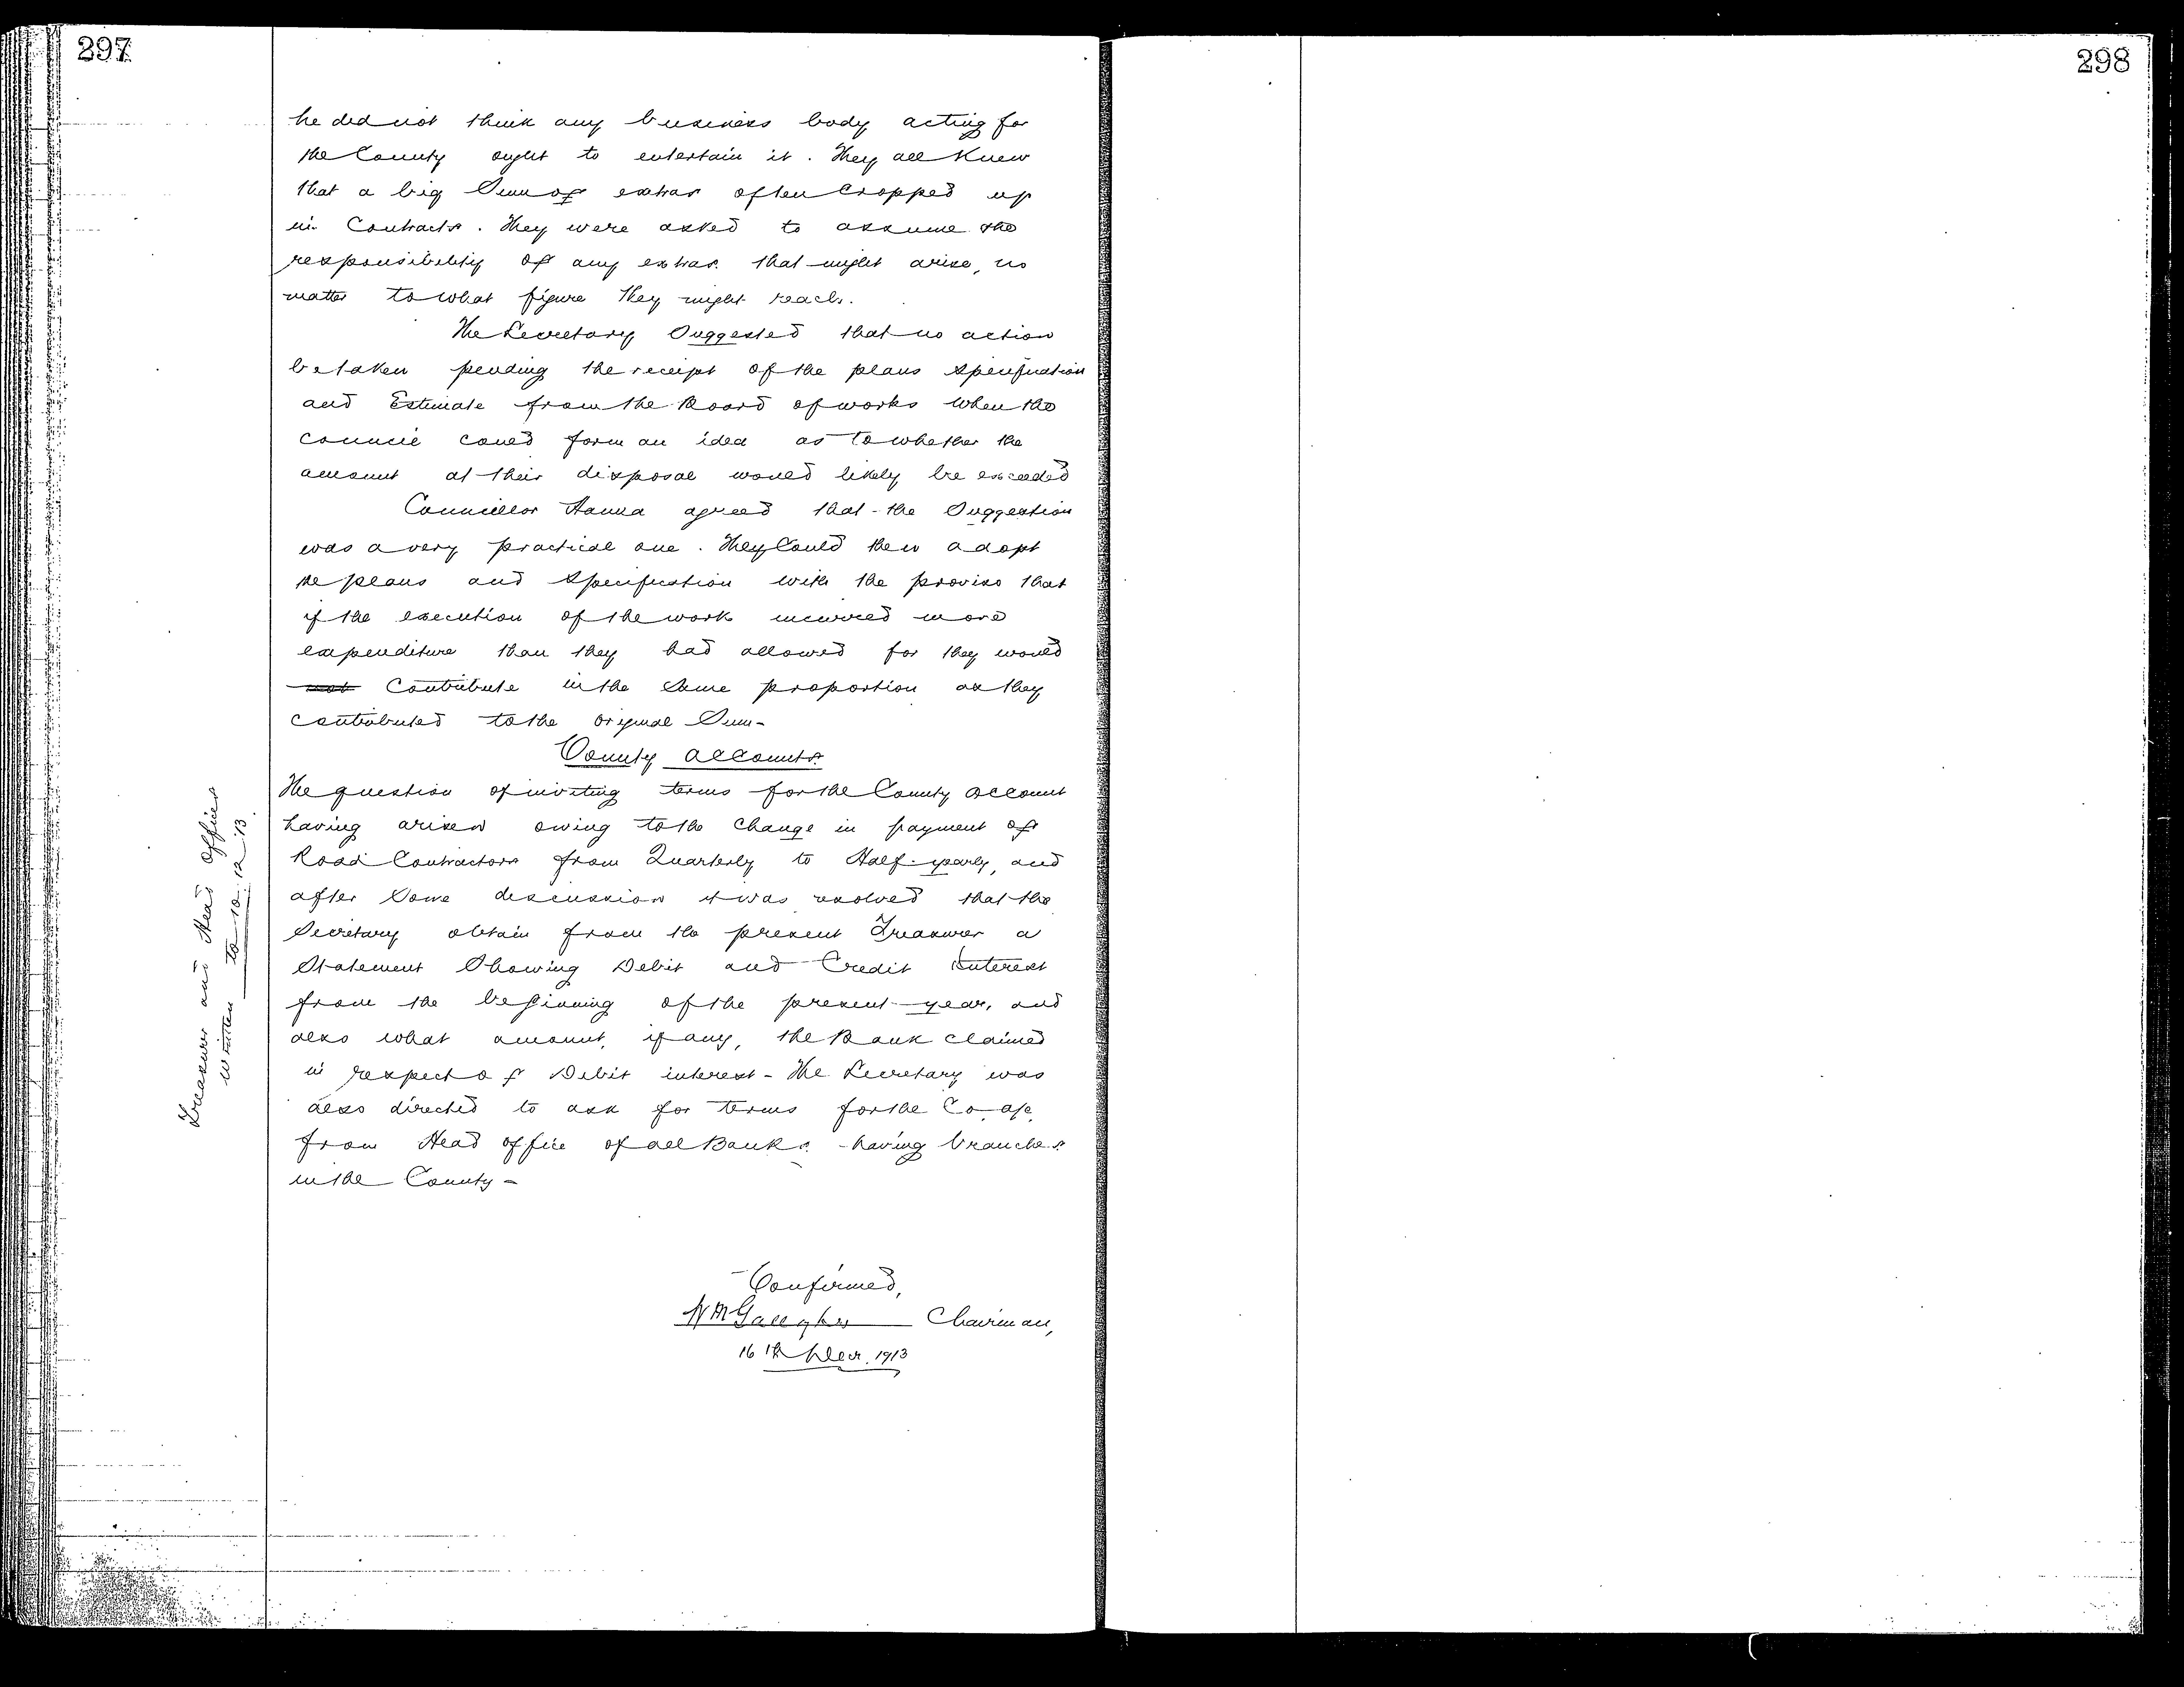 297
he did not think any business body acting for
the County ought to entertain it. They all Knew
that a big Sum of extras often Cropped up
in Contracts. They were asked to assume the
responsibility of any extras that might arise, no
matter to what figure they might reach.
The Secretary Suggested that no action
be taken pending the receipt of the plans Specification
and Estimate from the Board of works when the
Council could form an idea as to whether the
amount at their disposal would likely be exceeded
Councillor Hanna agreed that the Suggestion
was a very practical one. They Could then adopt
the plans and Specification with the proviso that
if the execution of the work incurred more
expenditure than they had allowed for they would
not Contribute in the Same proportion as they
contributed to the original Sum-
County Accounts.
The question of inviting terms for the County Account
having arisen owing to the Change in payment of
Road Contractors from Quarterly to Half-yearly, and
after Some discussion it was resolved that the
Secretary obtain from the present Treasurer a
Statement Showing Debit and Credit Interest
from the beginning of the present year, and
also what amount, if any, the Bank claimed
in respect of Debit interest - The Secretary was
also directed to ask for terms for the Co. a/c
from Head office of all Banks having branches
in the County -
Treasurer and Head Offices
written to 10.12.'13.
Confirmed,
Gallagher Chairman,
16th Decr. 1913
298